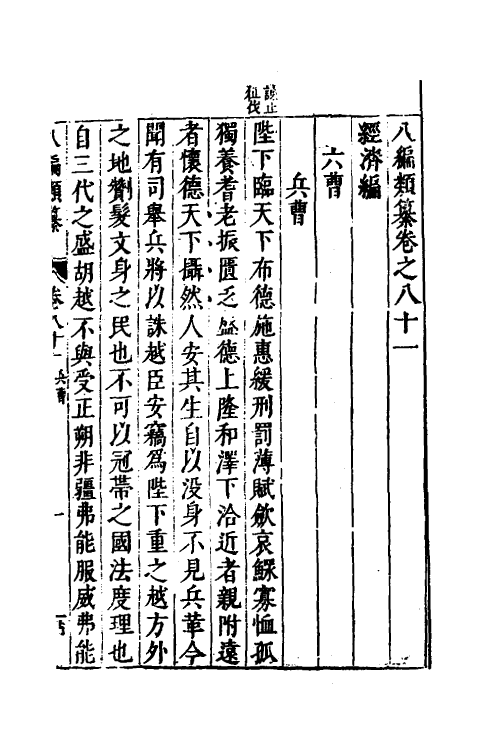 八編類纂卷之八十一
經濟編
六曹
兵曹
諫止
征伐
陛下臨天下布德施惠緩刑罰薄賦斂哀鰥寡恤孤
獨養耆老振匱乏盛德上隆和澤下洽近者親附遠
者懷德天下攝然人安其生自以没身不見兵革今
聞有司舉兵將以誅越臣安竊爲陛下重之越方外
之地劗髮文身之民也不可以冠帶之國法度理也
自三代之盛胡越不與受正朔非疆弗能服威弗能
八編類纂 卷八十一 兵曹 一